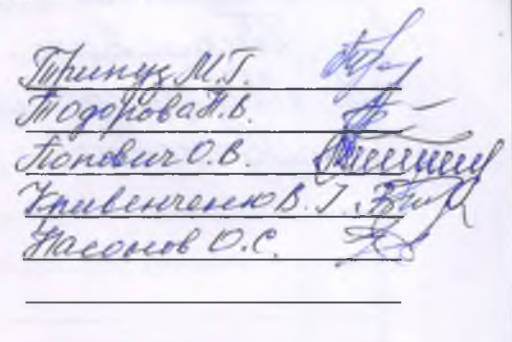 Тринуз М.Г.
Тодорова Н.В.
Попович О.В.
Кривенченю В. Г.
Насонов О.С.